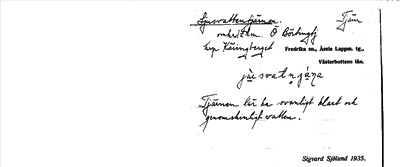 Ljusvattentjärnen. Tjärn
Ö Börtingtj
Käringberget Fredrika sn., Åsele Lappm. tg.,
Västerbottens län.
Tjärnen lär ha ovanligt klart och
genomskinligt vatten.
Sigvard Sjölund 1935.